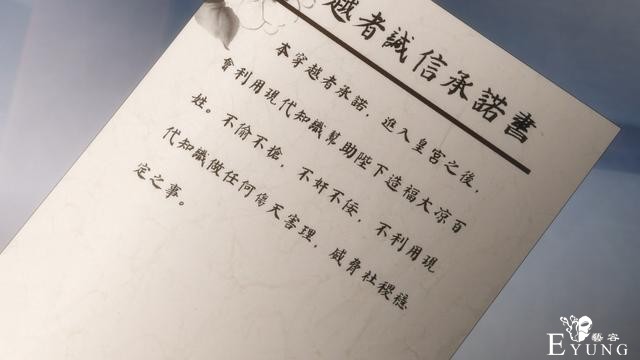 越者誠信承諾書
本穿越者承諾，進入皇宮之後，
會利用現代知識幫助陛下造福大凉百
姓。不偷不搶，不奸不佞，不利用現
代知識做任何傷天害理，威脅社稷穩
定之事。
藝容
EYUNG